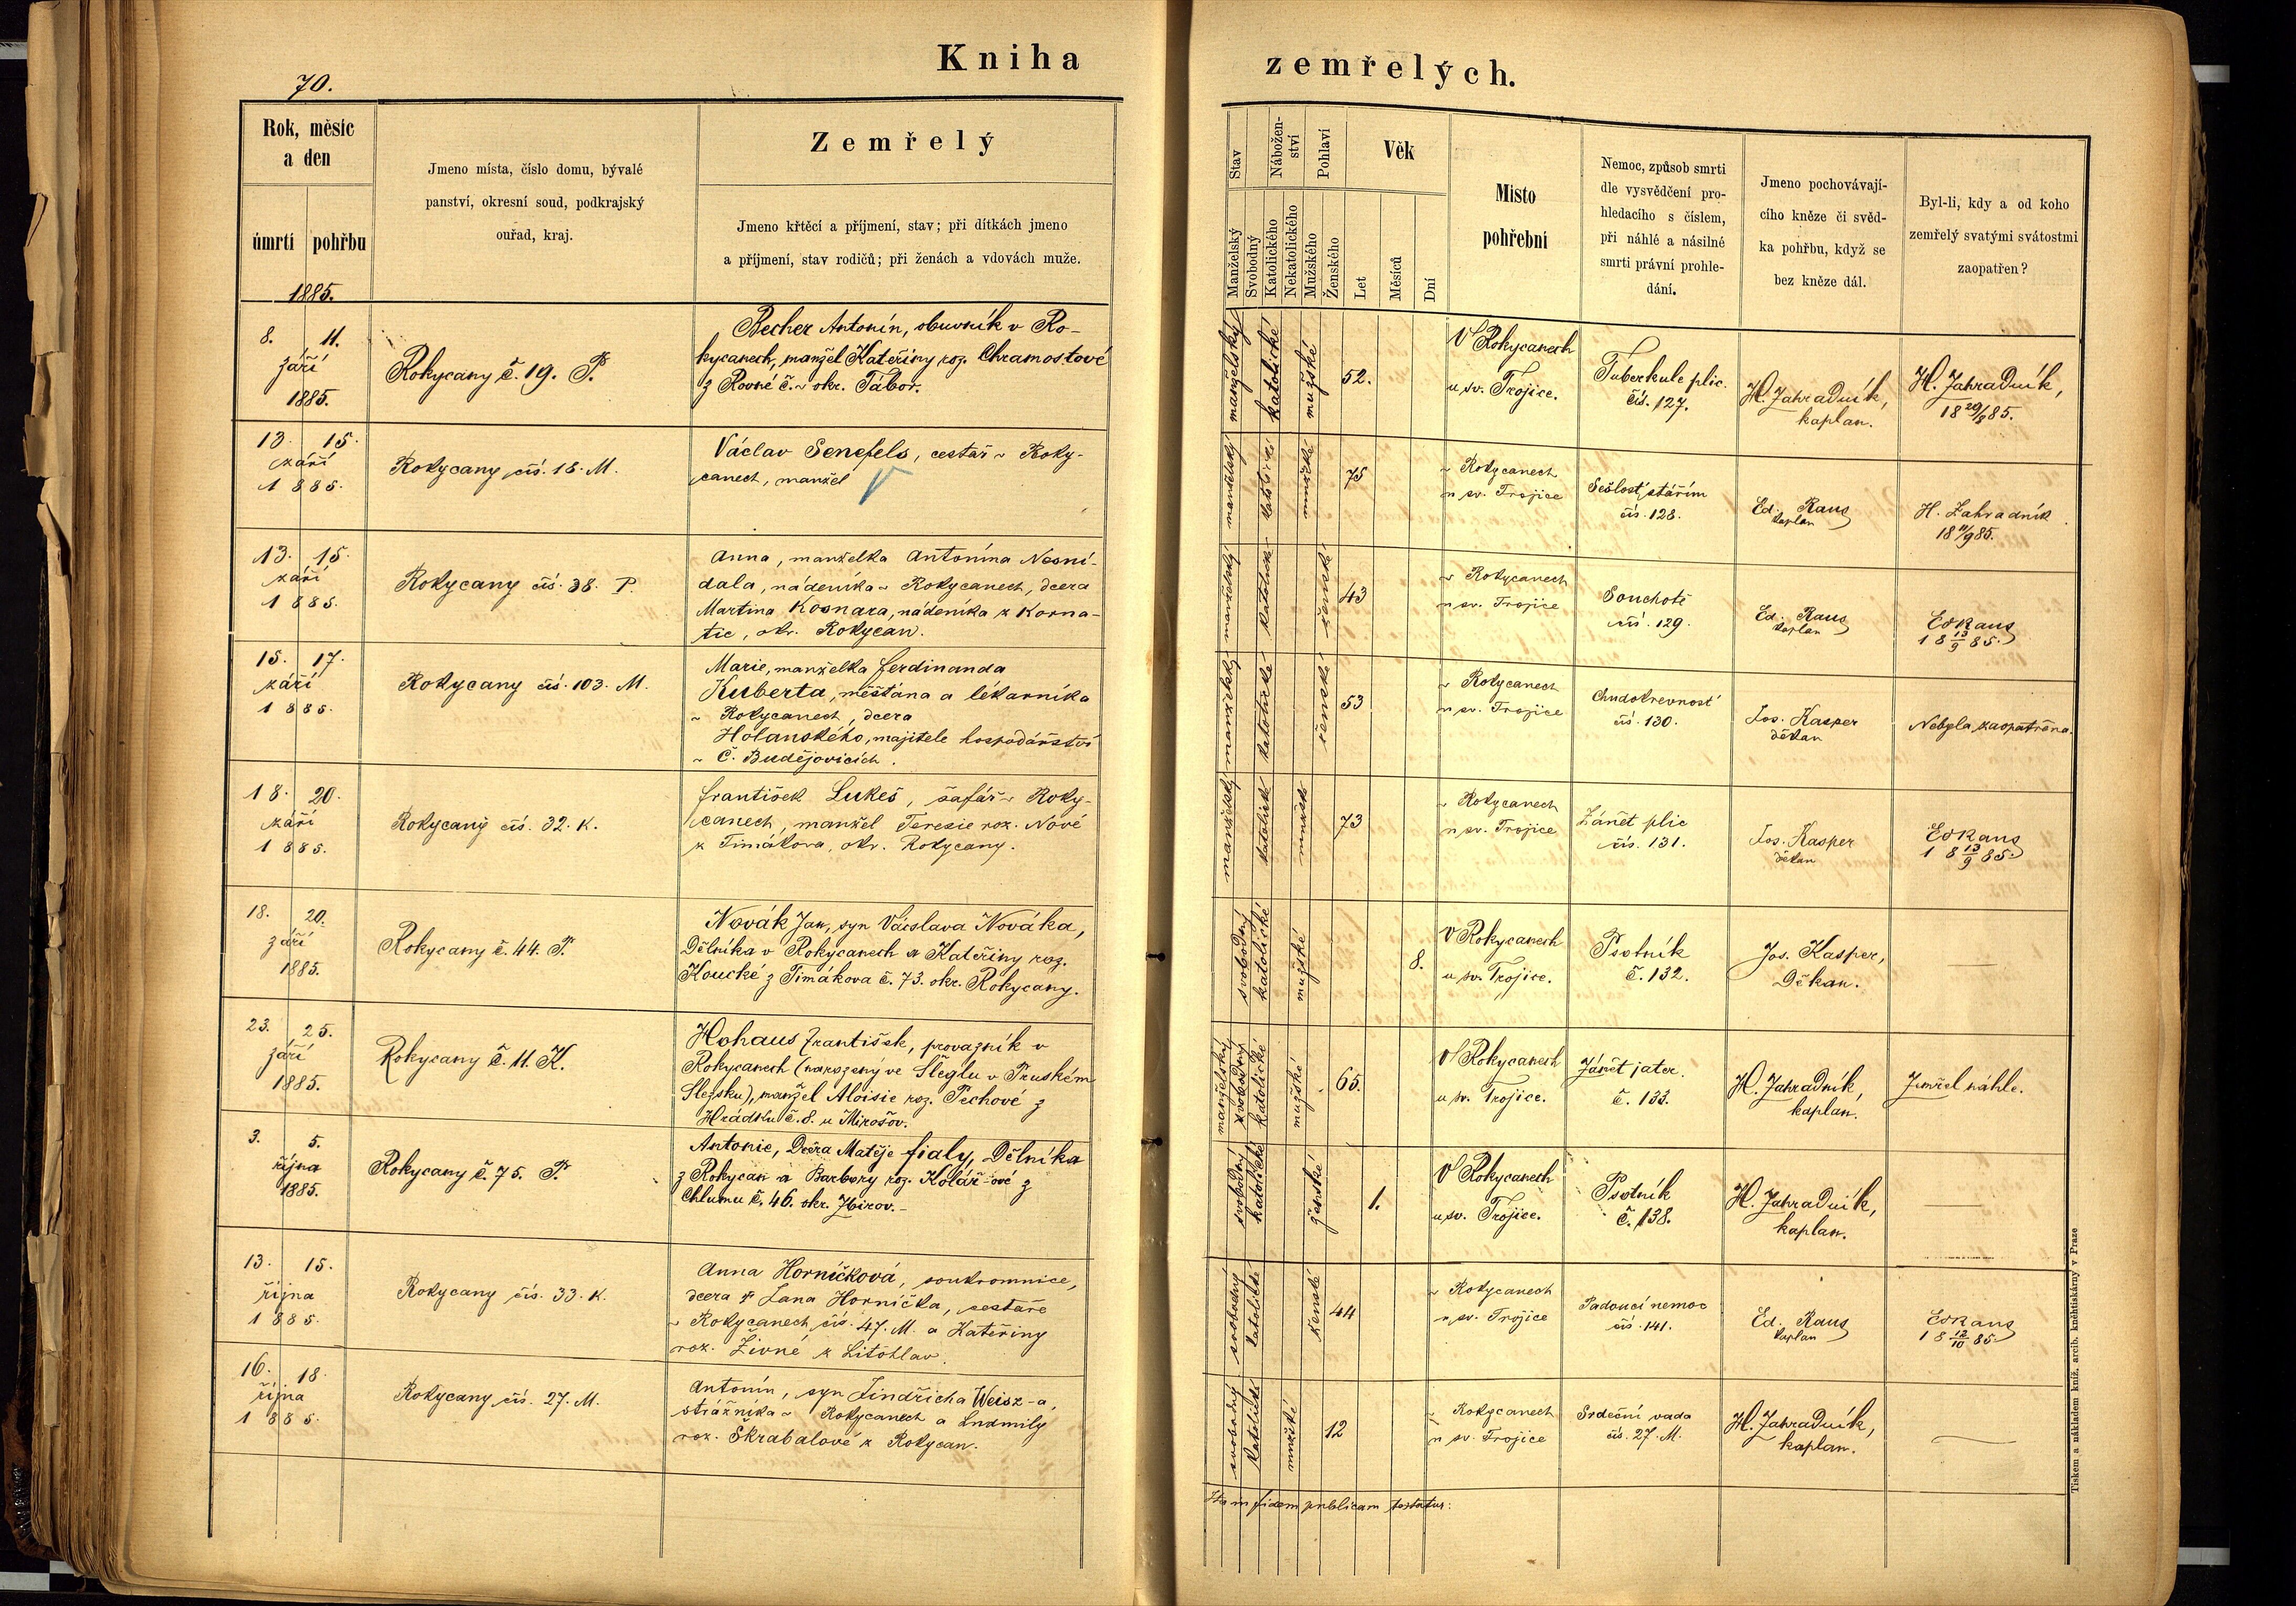 70.
Kniha zemřelých.
Rok, měsíc
a den
úmrtí pohřbu
1885.
Jmeno místa, číslo domu, bývalé
panství, okresní soud, podkrajský
ouřad, kraj.
Zemřelý
Jmeno křtěcí a příjmení, stav; při dítkách jmeno
a příjmení, stav rodičů; při ženách a vdovách muže.
Stav
Manželský
Svobodný
Nábožen-
ství
Katolického
Nekatolického
Pohlaví
Mužského
Ženského
Věk
Let
Měsíců
Dní
Místo
pohřební
Nemoc, způsob smrti
dle vysvědčení pro-
hledacího s číslem,
při náhlé a násilné
smrti právní prohle-
dání.
Jmeno pochovávají-
cího kněze či svěd-
ka pohřbu, když se
bez kněze dál.
Byl-li, kdy a od koho
zemřelý svatými svátostmi
zaopatřen?
8. 11.
září
1885.
Rokycany č. 19. P.
Becher Antonín, obuvník v Ro-
kycanech, manžel Kateřiny roz. Chramostové
z Rovné č. ~ okr. Tábor.
manželský
katolické
mužské
52.
V Rokycanech
u sv. Trojice.
Tuberkule plic.
čís. 127.
H. Zahradník,
kaplan.
H. Zahradník,
18 29/8 85.
13. 15.
září
1885.
Rokycany čís. 18. M.
Václav Senefels, cestář v Roky-
canech, manžel
manželský
katolické
mužské
75
v Rokycanech
u sv. Trojice
Sešlost stářím
čís. 128.
Ed. Raus
kaplan
H. Zahradník
18 11/9 85.
13. 15.
září
1885.
Rokycany čís. 38. P.
Anna, manželka Antonína Nesní-
dala, nádeníka v Rokycanech, dcera
Martina Kosnara, nádeníka z Korna-
tic, okr. Rokycan.
manželský
katolické
ženské
43
v Rokycanech
u sv. Trojice
Souchotě
čís. 129.
Ed. Raus
kaplan
Ed Raus
18 13/9 85.
15. 17.
září
1885.
Rokycany čís. 103. M.
Marie, manželka Ferdinanda
Kuberta, měšťana a lékarníka
v Rokycanech, dcera
Holanského, majitele hospodářství
v Č. Budějovicích.
manželský
katolické
ženské
53
v Rokycanech
u sv. Trojice
Chudokrevnosť
čís. 130.
Jos. Kasper
děkan
Nebyla zaopatřena.
18. 20.
září
1885.
Rokycany čís. 32. K.
František Lukeš, šafář v Roky-
canech, manžel Teresie roz. Nové
z Timákova, okr. Rokycany.
manželský
katolické
mužské
73
v Rokycanech
u sv. Trojice
Zánět plic
čís. 131.
Jos. Kasper
děkan
Ed Raus
18 13/9 85.
18. 20.
září
1885.
Rokycany č. 44. P.
Novák Jan, syn Václava Nováka,
Dělníka v Rokycanech a Kateřiny roz.
Koucké z Timákova č. 73. okr. Rokycany.
svobodný
katolické
mužské
8.
V Rokycanech
u sv. Trojice.
Psotník
č. 132.
Jos. Kasper,
Děkan.
—
23. 25.
září
1885.
Rokycany č. 11. K.
Hohaus František, provazník v
Rokycanech (narozený ve Šléglu v Pruském
Slezsku), manžel Aloisie roz. Pechové z
Hrádku č. 8. u Mirošov.
manželský
svobodný
katolické
mužské
65.
V Rokycanech
u sv. Trojice.
Zánět jater.
č. 133.
H. Zahradník,
kaplan.
Zemřel náhle.
3. 5.
října
1885.
Rokycany č. 75. P.
Antonie, Dcera Matěje Fialy, Dělníka
z Rokycan a Barbory roz. Kolář-ové z
Chlumu č. 46. okr. Zbirov.-
svobodný
katolické
ženské
1.
V Rokycanech
u sv. Trojice.
Psotník
č. 138.
H. Zahradník,
kaplan.
—
13. 15.
října
1885.
Rokycany čís. 33. K.
Anna Horníčková, soukromnice,
dcera † Jana Horníčka, cestáře
v Rokycanech čís. 47. M. a Kateřiny
roz. Živné z Litohlav.
svobodný
katolické
ženské
44
v Rokycanech
u sv. Trojice
Padoucí nemoc
čís. 141.
Ed. Raus
kaplan
Ed Raus
18 12/10 85.
16. 18.
října
1885.
Rokycany čís. 27. M.
Antonín, syn Jindřicha Weisz-a,
strážníka v Rokycanech a Ludmily
roz. Škrabalové z Rokycan.
svobodný
katolické
mužské
12
v Rokycanech
u sv. Trojice
Srdeční vada
čís. 27. M.
H. Zahradník,
kaplan.
—
Ita in fidem publicam testatur:
Tiskem a nákladem kníž. arcib. kněhtiskárny v Praze